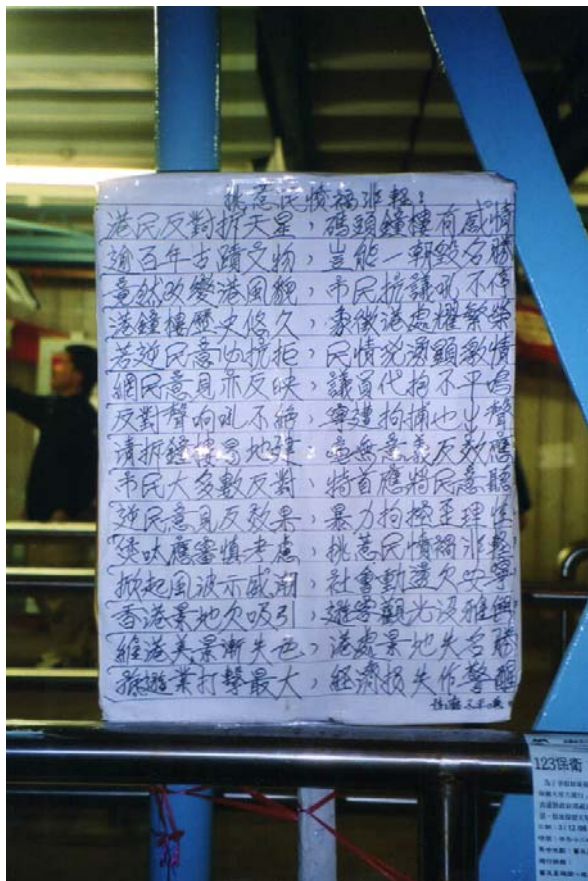 挑惹民憤禍非輕!
港民反對拆天星,碼頭鐘樓有感情
逾百年古蹟文物,豈能一朝毀名勝
竟然改變港風貌,市民抗議吼不停
港鐘樓歷史悠久,象徵港處耀繁榮
若逆民意必抗拒,民情洶湧顯激情
網民意見亦反映,議員代抱不平鳴
反對聲响吼不絕,寧遭拘捕也出聲
清拆鐘樓易地建,意義反效應
市民大多數反對,特首應將民意聽
逆民意見反效果,暴力拘控歪理
應審慎考慮,挑惹民憤禍非輕
掀起風波示威潮,社會動盪欠安寧
香港景地欠吸引,遊客觀光沒雅興
維港美景漸失色,港處景地失名勝
旅遊業打擊最大,經濟損失作警醒
123保衛